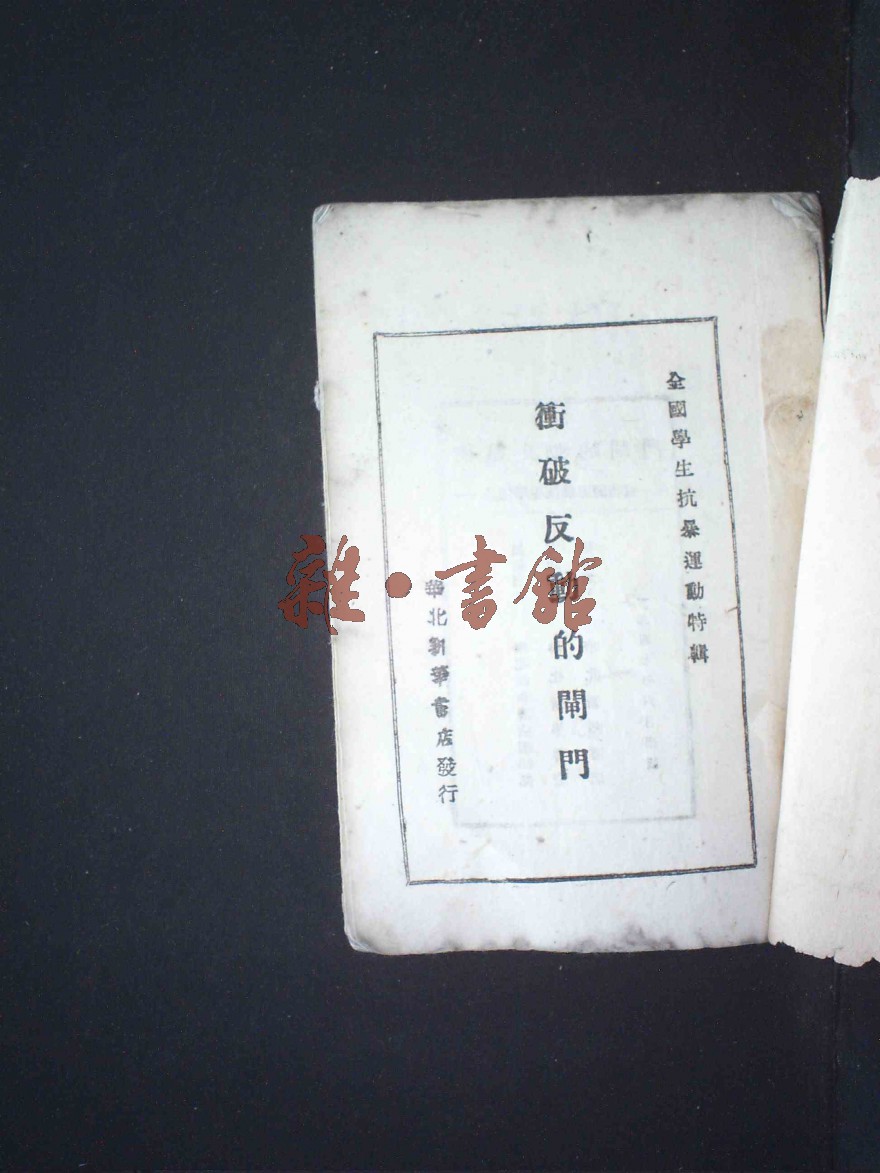 全國學生抗暴運動特輯
衝破反動的閘門
華北新華書店發行
雜·書館